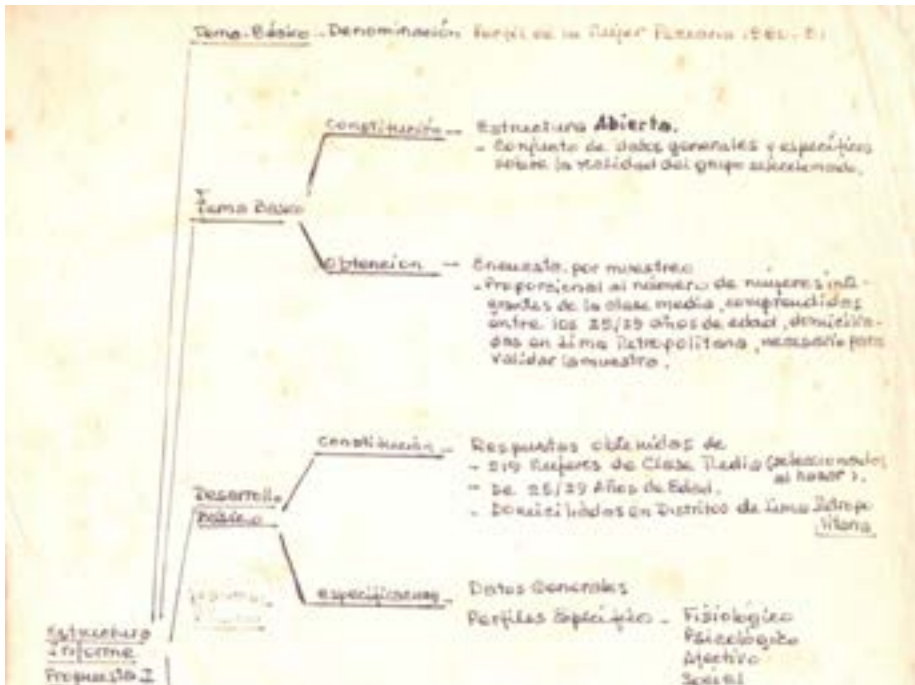 Tema Básico - Denominación Perfil de la Mujer Peruana 1980-81
Constitución - Estructura Abierta.
- Conjunto de datos generales y específicos
sobre la realidad del grupo seleccionado.
Tema Básico
Obtención - Encuesta por muestreo
- Proporcional al número de mujeres inte-
grantes de la clase media, comprendidas
entre los 25/29 años de edad, domicilia-
das en Lima Metropolitana, necesario para
validar la muestra.
Constitución - Respuestas obtenidas de
- Mujeres de Clase Media (seleccionadas
al hasar).
- De 25/29 Años de Edad.
- Domiciliadas en Distritos de Lima Metropo
litana
Desarrollo
Básico
Especificaciones - Datos Generales
Perfiles Específico - Fisiológico
Psicológico
Afectivo
Social
Estructura
Informe
Propuesta I